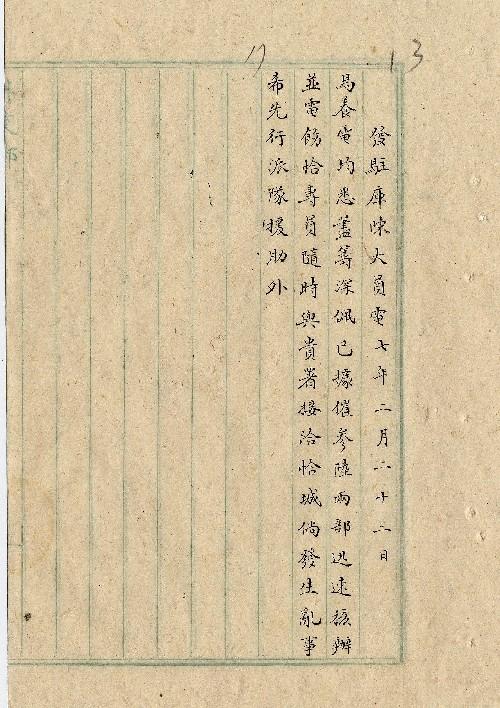 13
17
發駐庫陳大員電七年二月二十二日
馬泰電均悉藎籌深佩已據催參陸兩部迅速核辦
並電飭恰專員隨時與貴署接洽恰城倘發生亂事
希先行派隊援助外